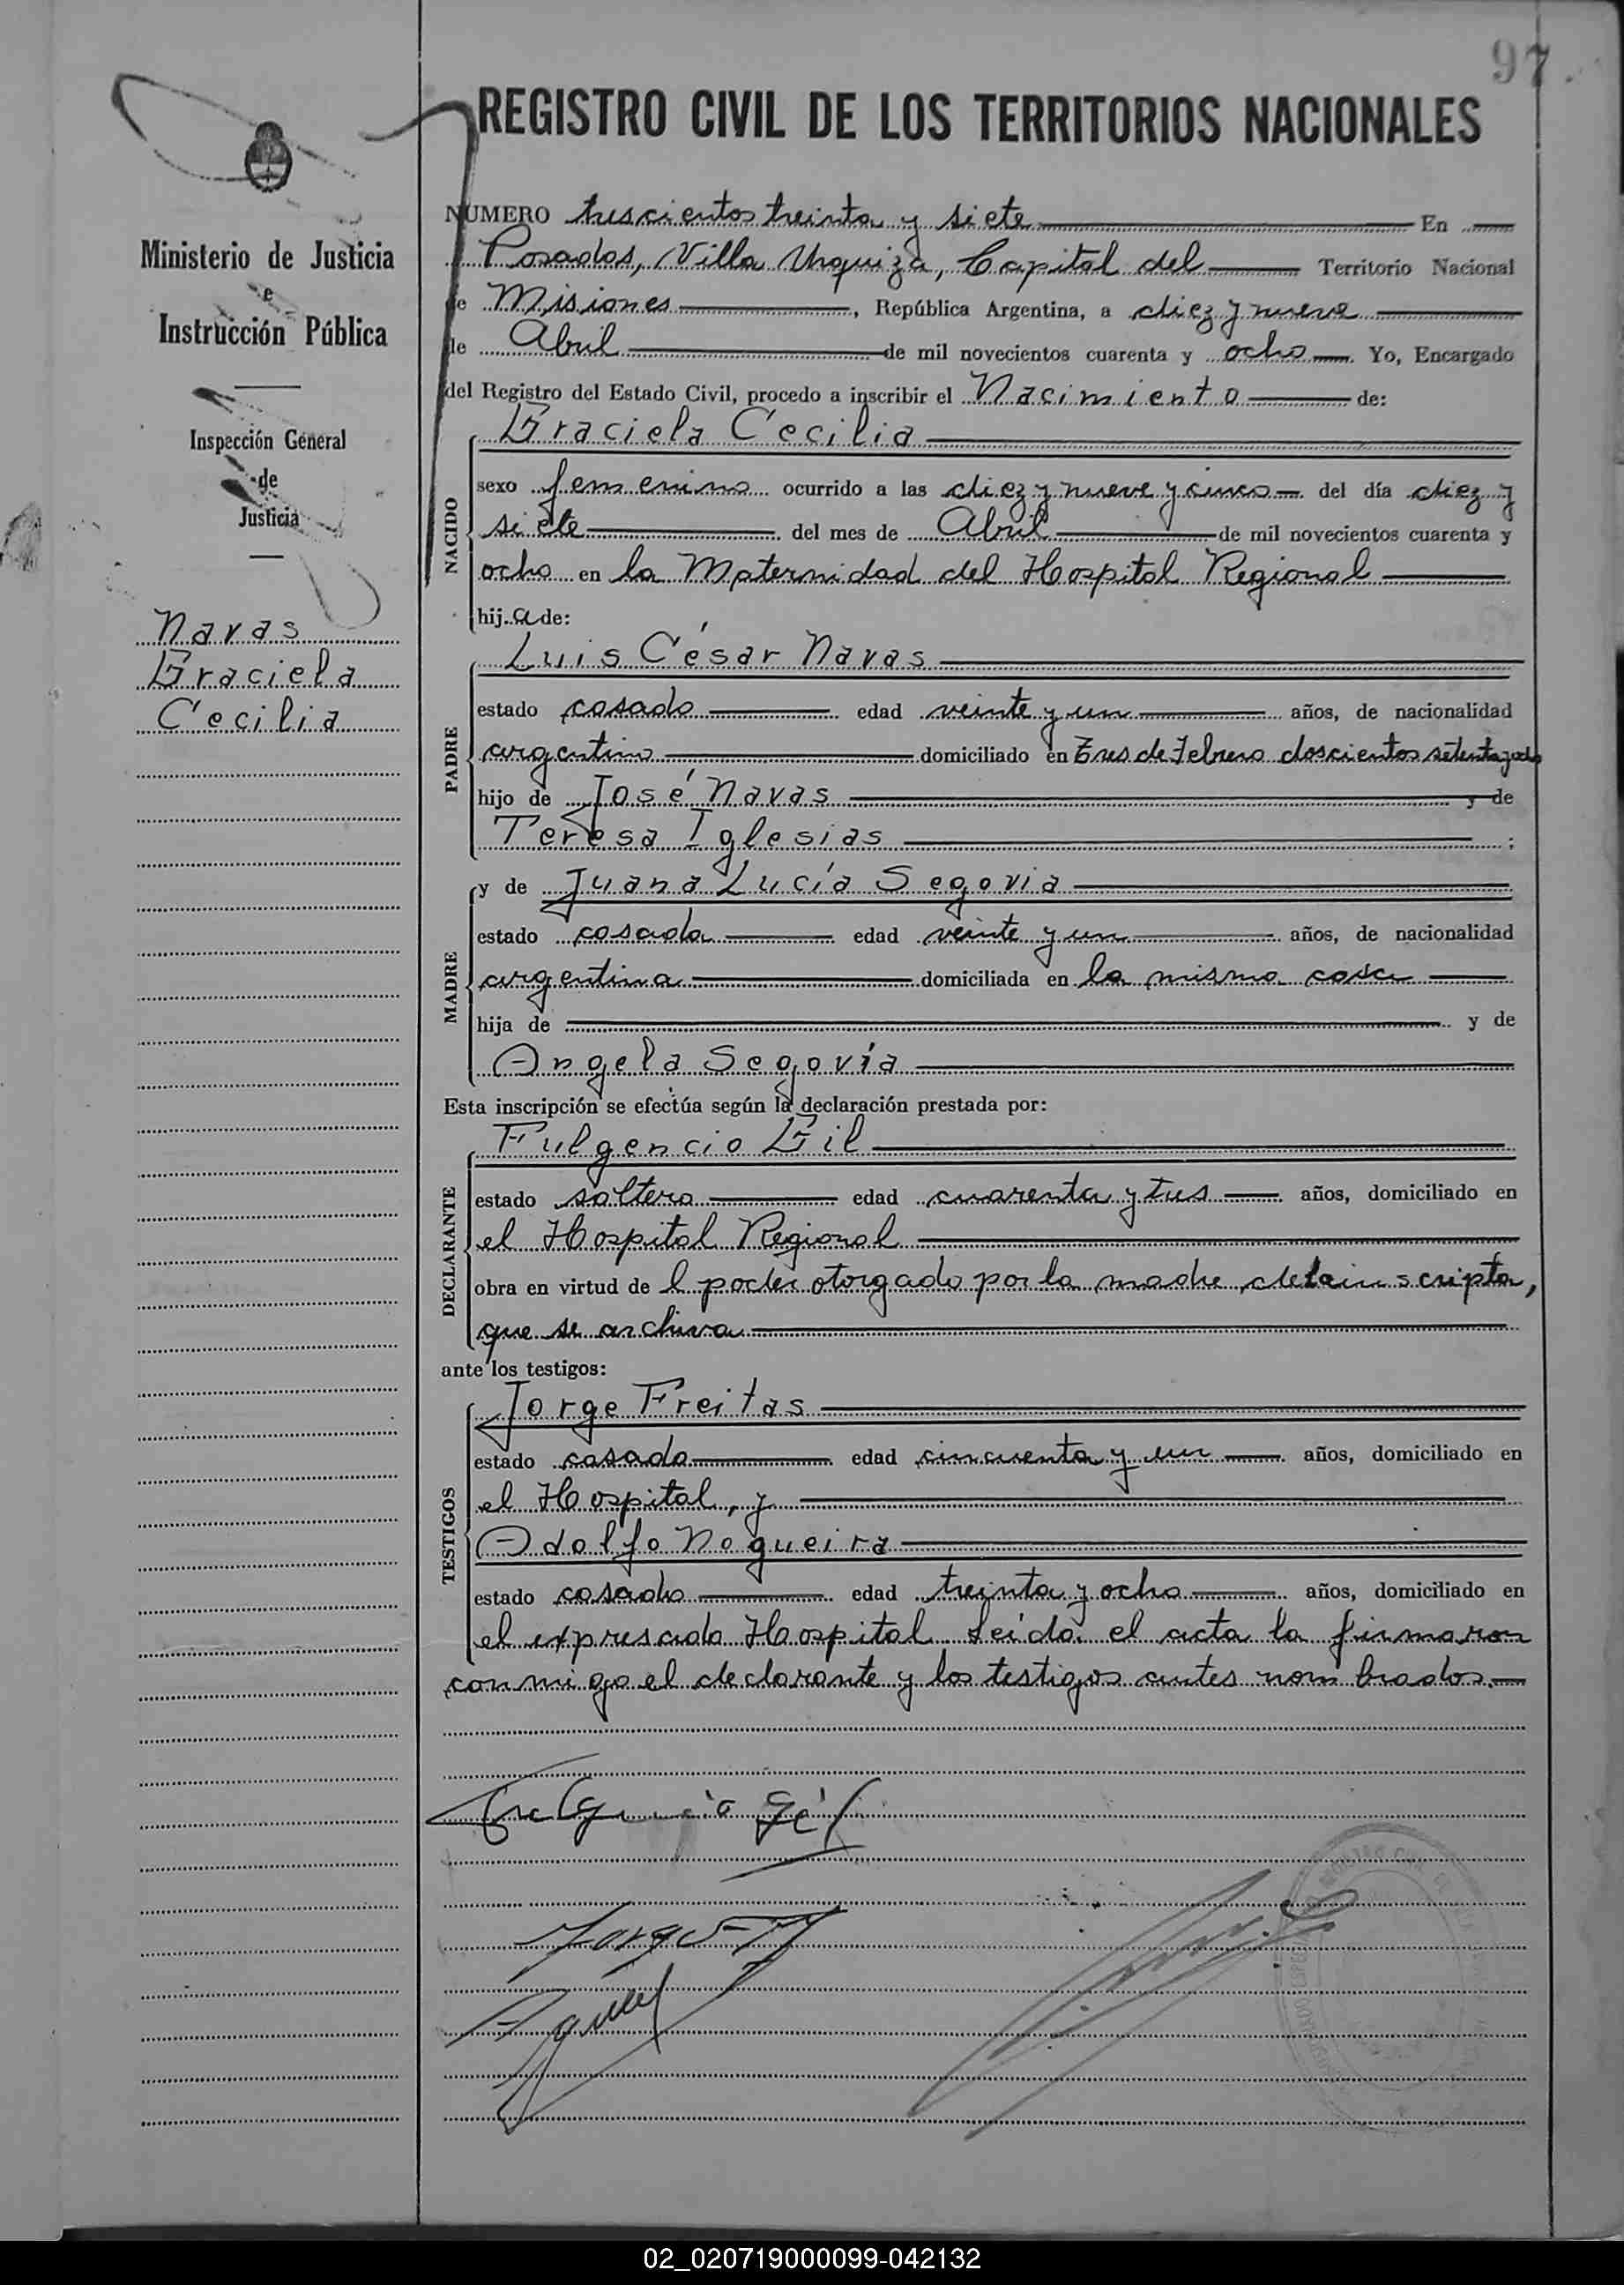 97.
REGISTRO CIVIL DE LOS TERRITORIOS NACIONALES
Ministerio de Justicia
e
Instrucción Pública
Inspección General
de
Justicia
Navas
Graciela
Cecilia
NÚMERO trescientos treinta y siete En
Posadas, Villa Urquiza, Capital del Territorio Nacional
de Misiones, República Argentina, a diez y nueve
de Abril de mil novecientos cuarenta y ocho Yo, Encargado
del Registro del Estado Civil, procedo a inscribir el Nacimiento de:
NACIDO
Graciela Cecilia
sexo femenino ocurrido a las diez y nueve y cinco del día diez y
siete del mes de Abril de mil novecientos cuarenta y
ocho en la Maternidad del Hospital Regional
hij a de:
PADRE
Luis César Navas
estado casado edad veinte y un años, de nacionalidad
argentino domiciliado en Tres de Febrero doscientos setenta y ocho
hijo de José Navas y de
Teresa Iglesias ;
MADRE
y de Juana Lucía Segovia
estado casada edad veinte y un años, de nacionalidad
argentina domiciliada en la misma casa
hija de y de
Angela Segovia
Esta inscripción se efectúa según la declaración prestada por:
DECLARANTE
Fulgencio Gil
estado soltero edad cuarenta y tres años, domiciliado en
el Hospital Regional
obra en virtud de l poder otorgado por la madre de la inscripta,
que se archiva
ante los testigos:
TESTIGOS
Jorge Freitas
estado casado edad cincuenta y un años, domiciliado en
el Hospital, y
Adolfo Nogueira
estado casado edad treinta y ocho años, domiciliado en
el expresado Hospital. Leída el acta la firmaron
conmigo el declarante y los testigos antes nombrados.
Fulgencio Gil
02_020719000099-042132